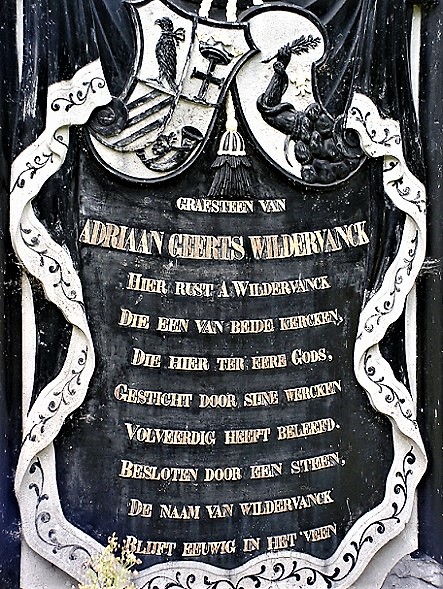 GRAFSTEEN VAN
ADRIAAN GEERTS WILDERVANCK
HIER RUST A WILDERVANCK
DIE EEN VAN BEIDE KERCKEN,
DIE HIER TER EERE GODS,
GESTICHT DOOR SIJNE WERCKEN
VOLVEERDIG HEEFT BELEEFD.
BESLOTEN DOOR EEN STEEN,
DE NAAM VAN WILDERVANCK
BLIJFT EEUWIG IN HET VEEN